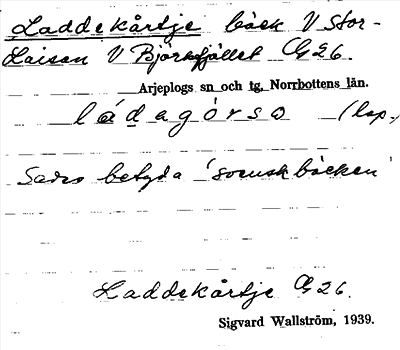 Laddekårtje bäck V Stor-
Laisan V Björkfjället G26.
Arjeplogs sn och tg, Norrbottens län.
ládagȯrsɒ (lap.,
Säges betyda 'svenskbäcken'
Laddekårtje G26.
Sigvard Wallström, 1939.